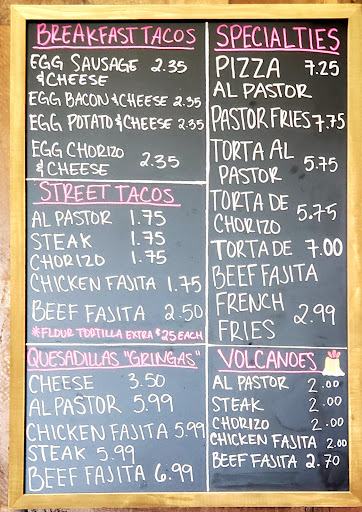 BREAKFAST TACOS
EGG SAUSAGE 2.35
& CHEESE
EGG BACON & CHEESE 2.35
EGG POTATO & CHEESE 2.35
EGG CHORIZO
& CHEESE 2.35
STREET TACOS
AL PASTOR 1.75
STEAK 1.75
CHORIZO 1.75
CHICKEN FAJITA 1.75
BEEF FAJITA 2.50
*FLOUR TORTILLA EXTRA $.25 EACH
QUESADILLAS "GRINGAS"
CHEESE 3.50
AL PASTOR 5.99
CHICKEN FAJITA 5.99
STEAK 5.99
BEEF FAJITA 6.99
SPECIALTIES
PIZZA 7.25
AL PASTOR
PASTOR FRIES 7.75
TORTA AL
PASTOR 5.75
TORTA DE
CHORIZO 5.75
TORTA DE 7.00
BEEF FAJITA
FRENCH
FRIES 2.99
VOLCANOES
AL PASTOR 2.00
STEAK 2.00
CHORIZO 2.00
CHICKEN FAJITA 2.00
BEEF FAJITA 2.70